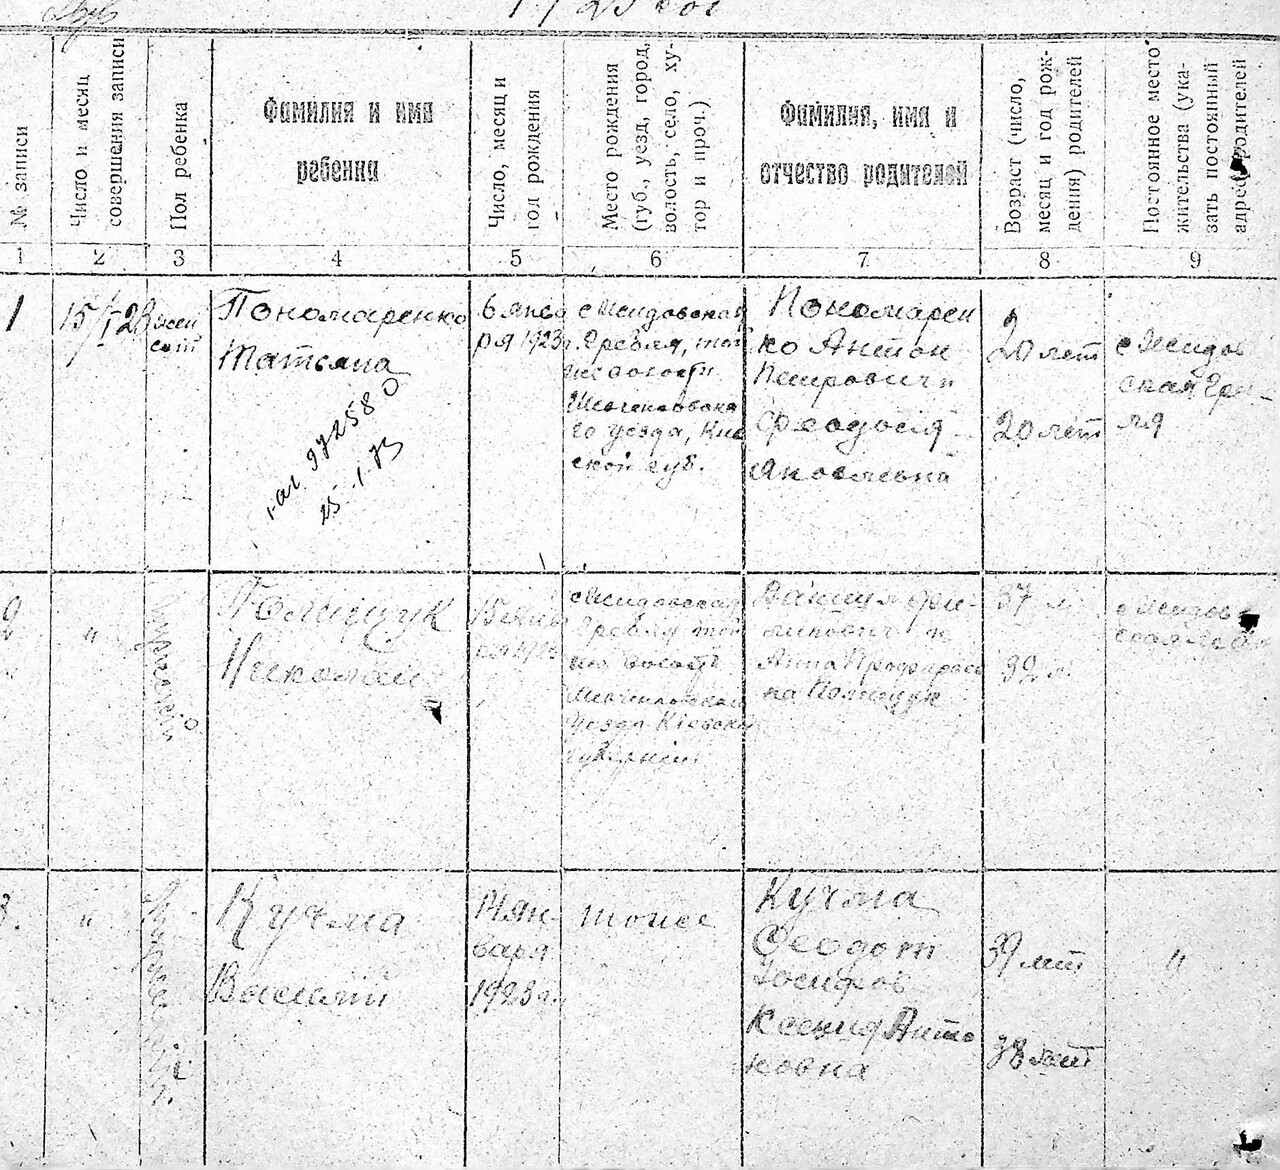 1923 год
№ записи
Число и месяц
совершения записи
Пол ребенка
Фамилия и имя
ребенка
Число, месяц и
год рождения
Место рождения
(губ., уезд, город,
волость, село, ху-
тор и проч.)
Фамилия, имя и
отчество родителей
Возраст (число,
месяц и год рож-
дения) родителей
Постоянное место
жительства (ука-
зать постоянный
адрес родителей
1 2 3 4 5 6 7 8 9
1
15/I-23
жен
ский
Пономаренко
Татьяна
972580
25.1.73
6 янва
ря 1923г.
с Жидовская
Гребля, той
же волости
го уезда, Кие
ской губ.
Пономарен
ко Антон
Петрович и
Феодосия
Яковлевна
20 лет
20 лет
с Жидов
ская Гре-
ля
2
"
мужской
Полищук
Николай
15 янва
ря 1923
с Жидовская
Гребля той
же волости
уезда Кіевской
губернии
Даниил Фи-
липович и
Анна
на Полищук
37 л.
32 л.
с Жидов
ская
3.
"
Кучма
Василий
14 ян-
варя
1923 г.
тоже
Кучма
Феодот
Иосифов
Ксения Анто
новна
39 лет
38 лет
"